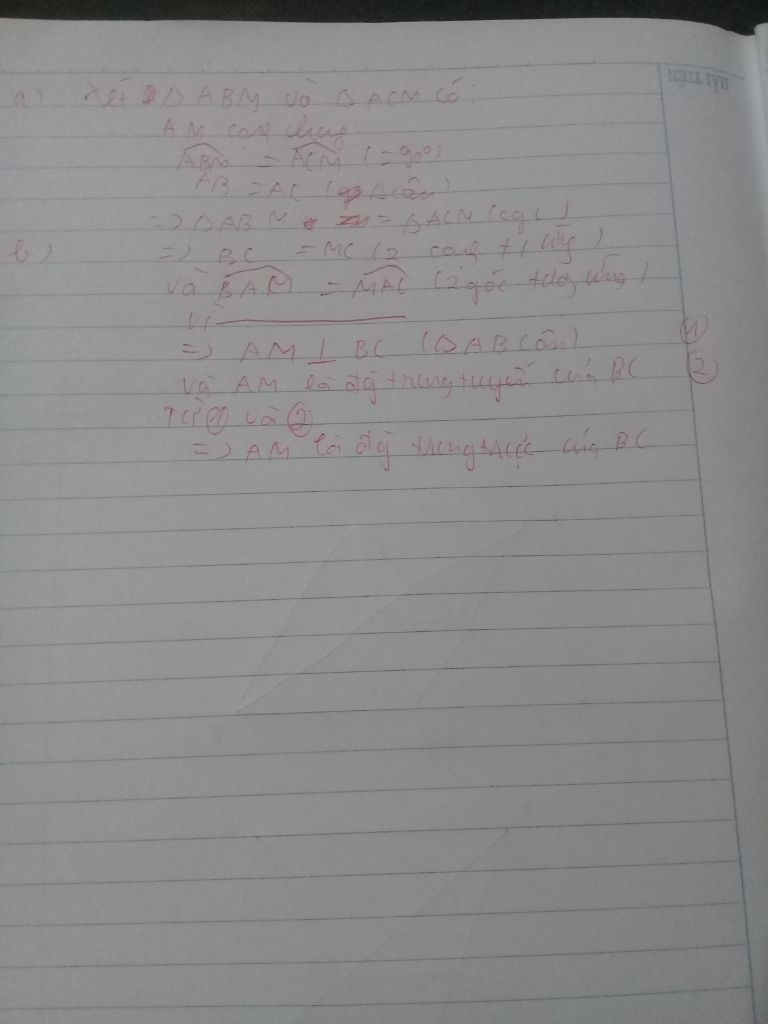 HẢI TIẾN
a) Xét Δ ABM và Δ ACM có:
AM cạnh chung
ABM = ACM (= 90°)
AB = AC (Δ cân)
=> Δ ABM = Δ ACM (cgc)
b) => BC = MC (2 cạnh tứ)
và BAM = MAC (2 góc tứ ứng)
=> AM ⊥ BC (Δ ABC cân) (1)
và AM là đg trung tuyến của BC (2)
Từ (1) và (2)
=> AM là đg trung trực của BC